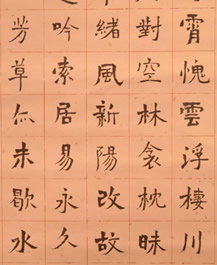 霄愧雲浮棲川
對空林衾枕昧
緒風新陽改故
吟索居易永久
芳草亦未歇水